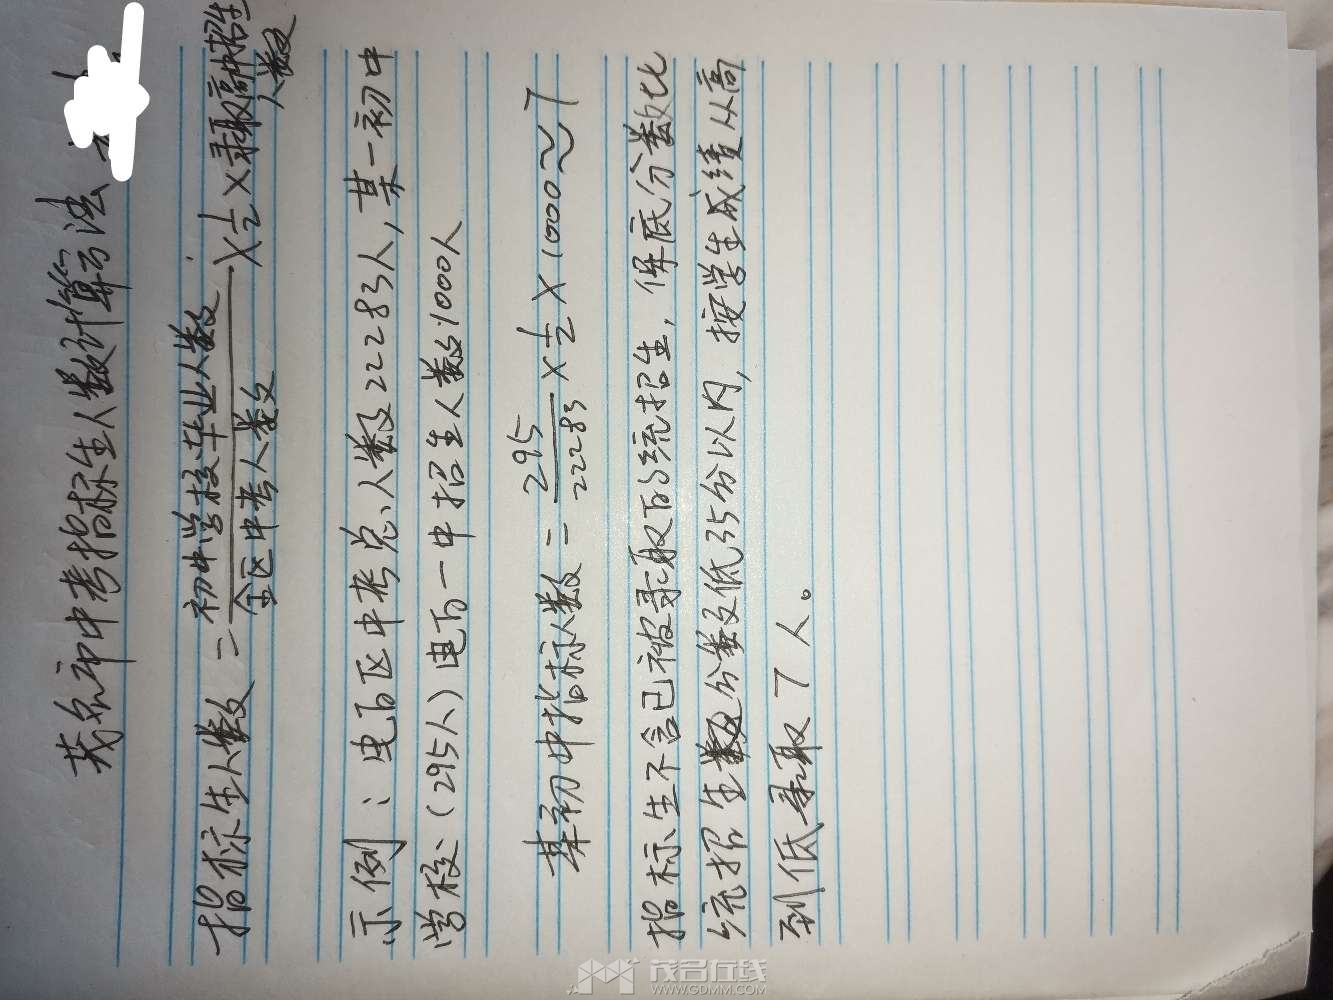 茂名市中考指标生人数计算方法
指标生人数 = 初中学校毕业人数/全区中考人数 × 1/2 × 录取高中招生人数
示例：电白区中考总人数22283人，某一初中
学校（295人）电白一中招生人数1000人
某初中指标人数 = 295/22283 × 1/2 × 1000 ≈ 7
指标生不含已被录取的统招生，保底分数比
统招生分数低35分以内，按学生成绩从高
到低录取7人。
茂名在线
WWW.GDMM.COM